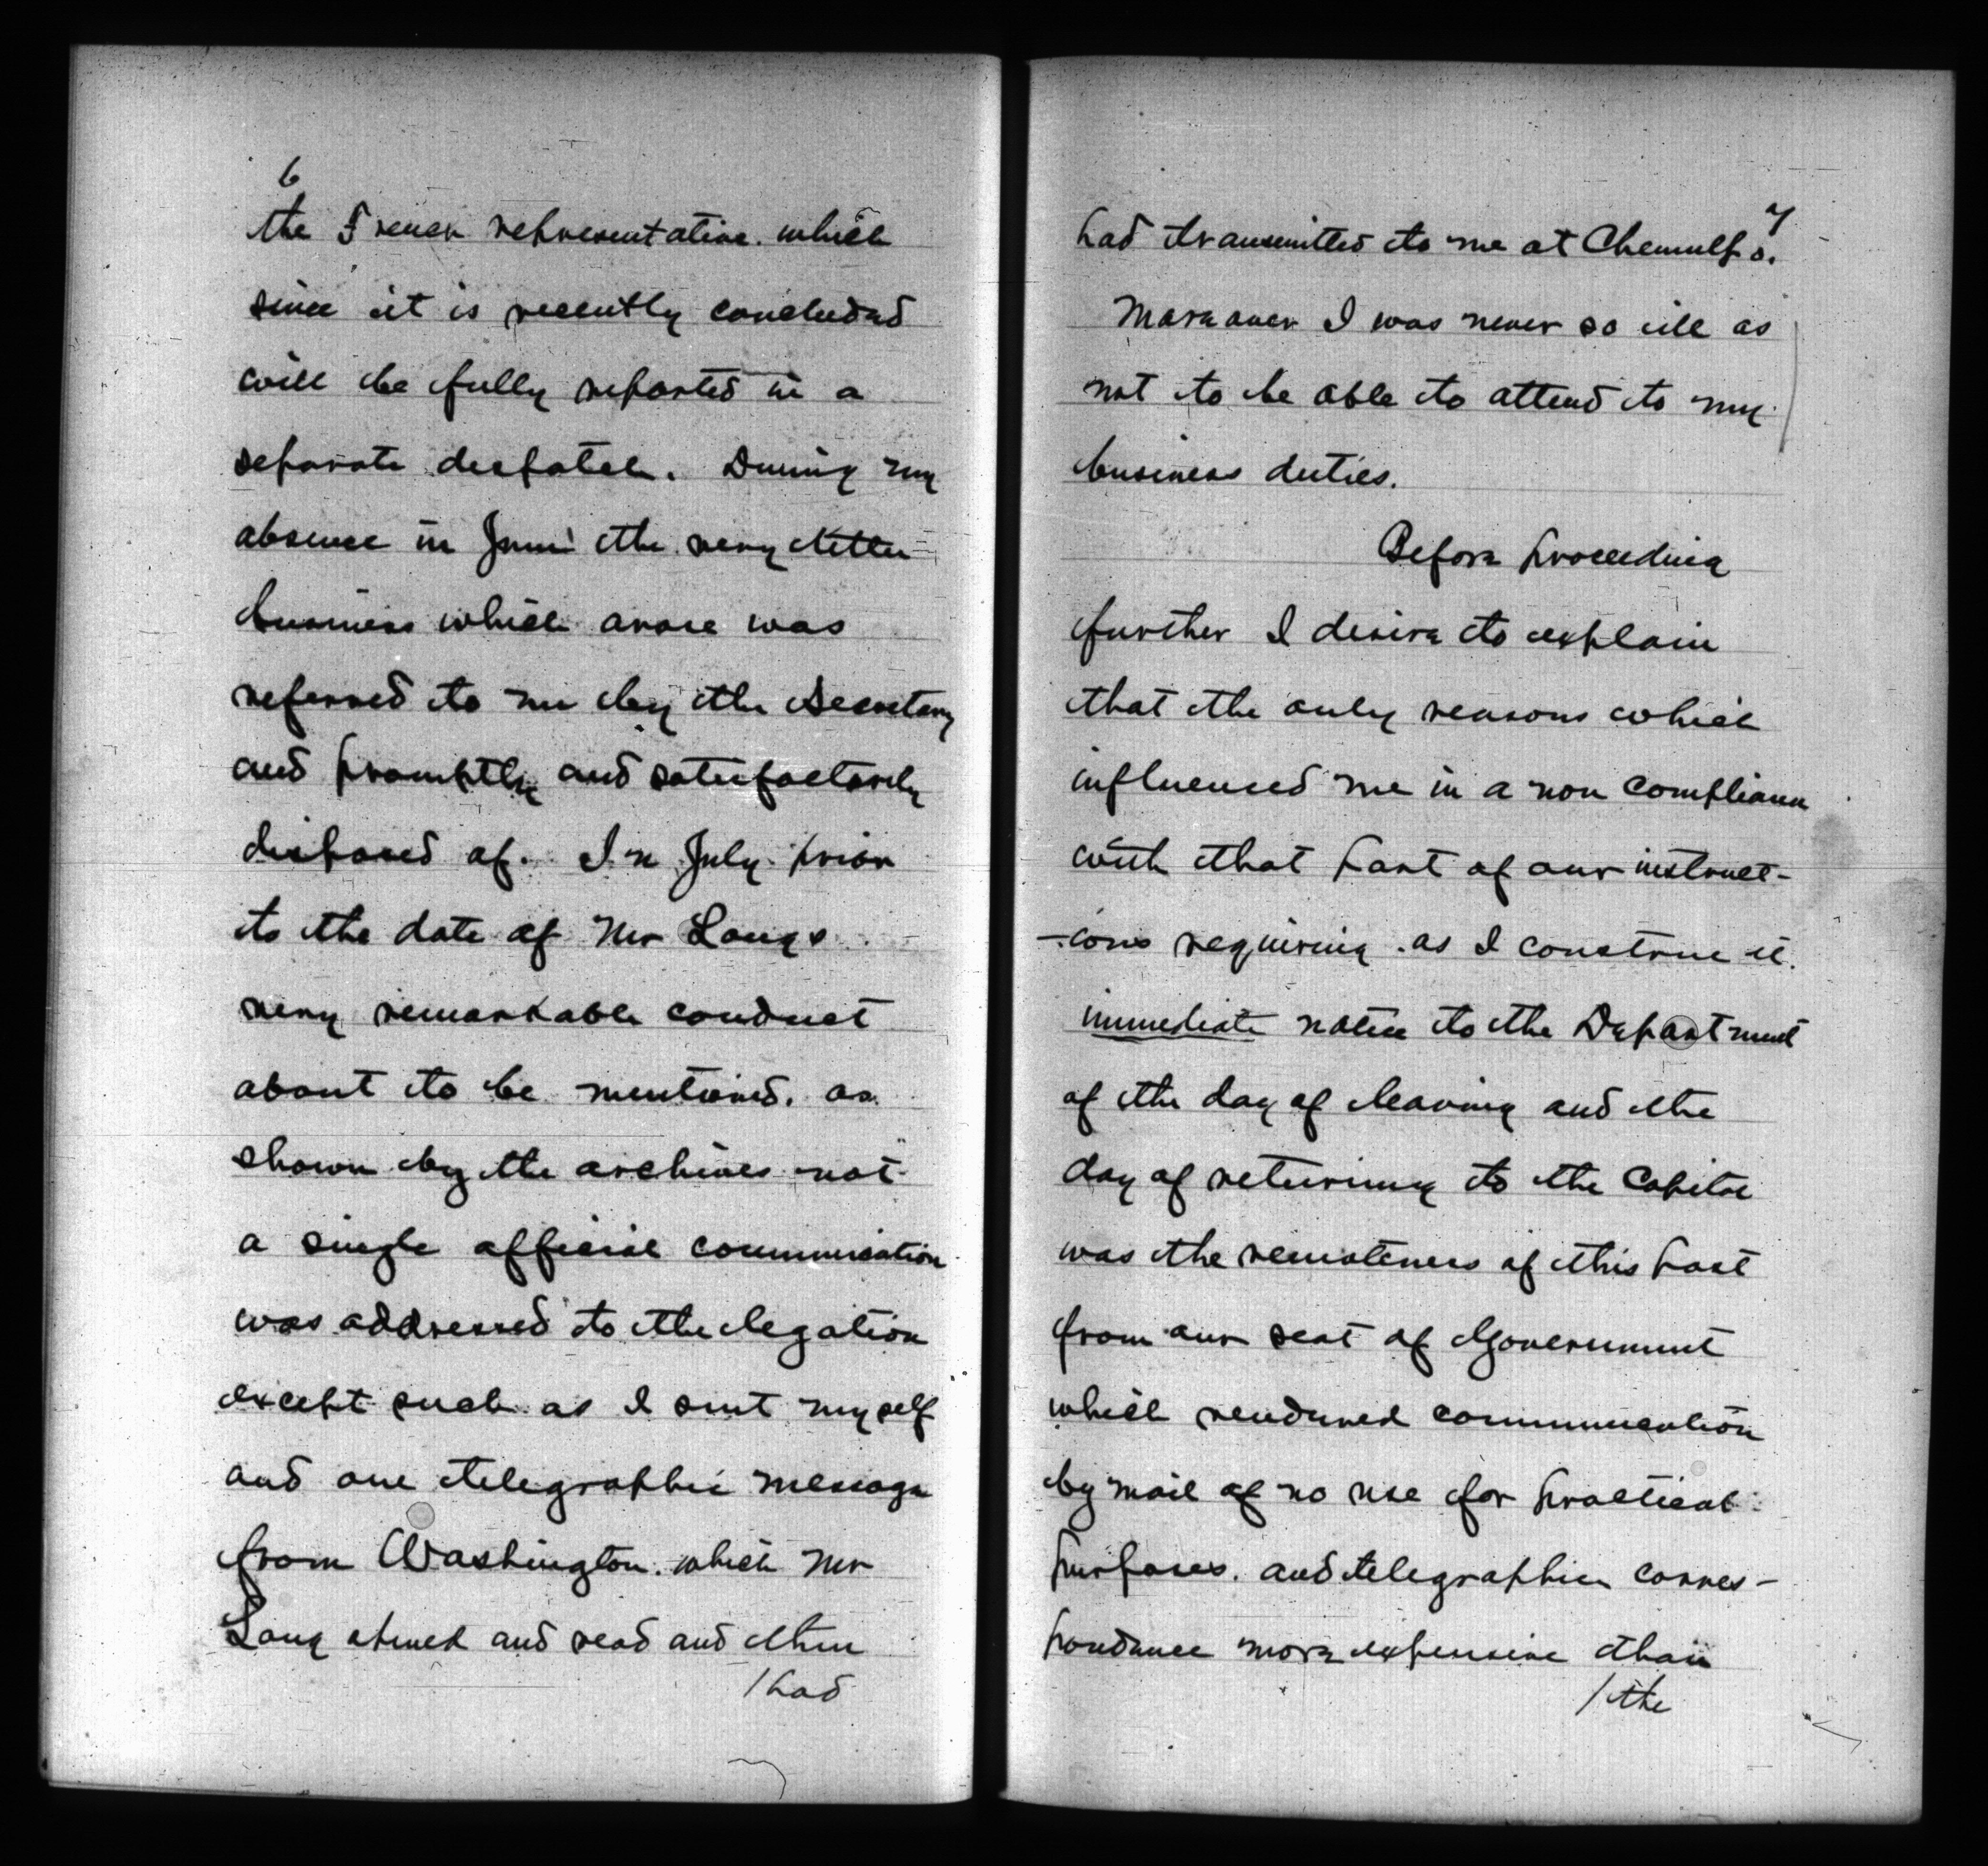 6
the French representative. which
since it is recently concluded
will be fully reported in a
separate despatch. During my
absence in June the very little
business which arose was
referred to me by the Secretary
and promptly and satisfactorily
disposed of. In July prior
to the date of Mr Longs
very remarkable conduct
about to be mentioned. as
shown by the archives not
a single official communication
was addressed to the legation
except such as I sent myself
and one telegraphic message
from Washington. which Mr
Long opened and read and then
/had
7
had transmitted to me at Chemulpo.
Moreover I was never so ill as
not to be able to attend to my
business duties.
Before proceeding
further I desire to explain
that the only reasons which
influenced me in a non compliance
with that part of our instruct-
-ions requiring. as I construe it.
immediate notice to the Department
of the day of leaving and the
day of returning to the Capitol
was the remoteness of this post
from our seat of Government
which rendered communication
by mail of no use for practical
purposes. and telegraphic corres-
pondence more expensive than
/the